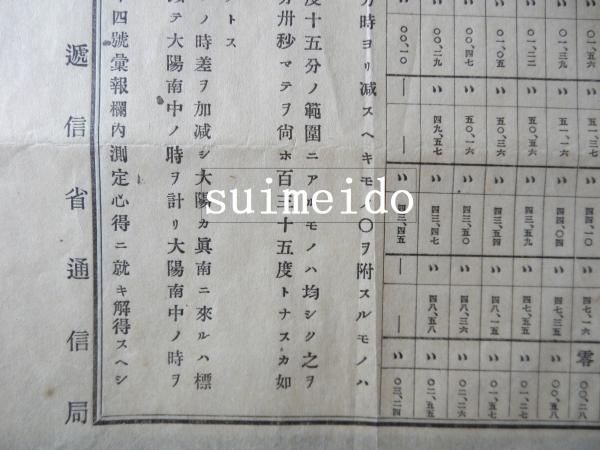 分時ヨリ減スヘキモノ〇ヲ附スルモノハ
度十五分ノ範圍ニアルモノハ均シク之ヲ
分卅秒マテヲ尙ホ百三十五度トナスカ如
トス
ノ時差ヲ加減シ大陽カ眞南ニ來ルハ標
テ大陽南中ノ時ヲ計リ大陽南中ノ時ヲ
四號彙報欄內測定心得ニ就キ解得スヘシ
遞信省通信局
〃 〇一、五六 〃 五一、五七 〃 四四、一〇 〃 四七、一六 零 〇〇、二八
〃 〇一、三九 〃 五一、一六 〃 四四、〇四 〃 四七、三五 〃 〇〇、五八
〃 〇一、二二 〃 五〇、三六 〃 四三、五九 〃 四七、五五 〃 〇一、二七
〃 〇一、〇五 〃 五〇、三六 〃 四三、五四 〃 四八、一五 〃 〇一、五七
〃 〇〇、四七 〃 五〇、一六 〃 四三、五〇 〃 四八、三六 〃 〇二、二六
〃 〇〇、二九 〃 四九、五七 〃 四三、四七 〃 四八、五八 〃 〇二、五五
〃 〇〇、一〇 — — 〃 四三、四五 — — 〃 〇三、二四
suimeido